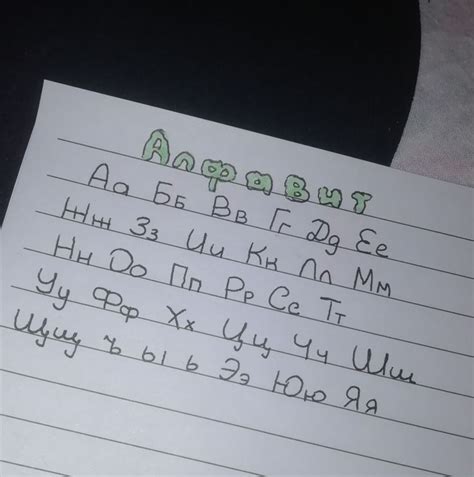 Алфавит
Аа Бб Вв Гг Дд Ее
Жж Зз Ии Кк Лл Мм
Нн Оо Пп Рр Сс Тт
Уу Фф Хх Цц Чч Шш
Щщ ъ ы ь Ээ Юю Яя